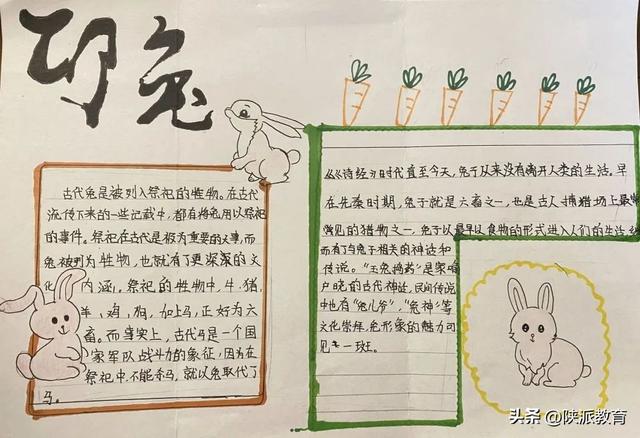 卯兔
古代兔是被列入祭祀的牲物。在古代
流传下来的一些记载中，都有将兔用以祭祀
的事件。祭祀在古代是极为重要的大事，而
兔被列为牲物，也就有了更深深的文
化内涵。祭祀的牲物中，牛、猪、
羊、鸡、狗，加上马，正好为六
畜。而事实上，古代马是一个国
家军队战斗力的象征，因为在
祭祀中，不能杀马，就以兔取代了
马。
从《诗经》时代直至今天，兔子从来没有离开人类的生活。早
在先秦时期，兔子就是六畜之一，也是古人捕猎场上最
常见的猎物之一，兔子以最早以食物的形式进入人们的生活
而有了与兔子相关的神话和
传说。“玉兔捣药”是家喻
户晓的古代神迹，民间传说
中也有“兔儿爷”，“兔神”等
文化崇拜，兔形象的魅力可
见一斑。
头条 @陕派教育